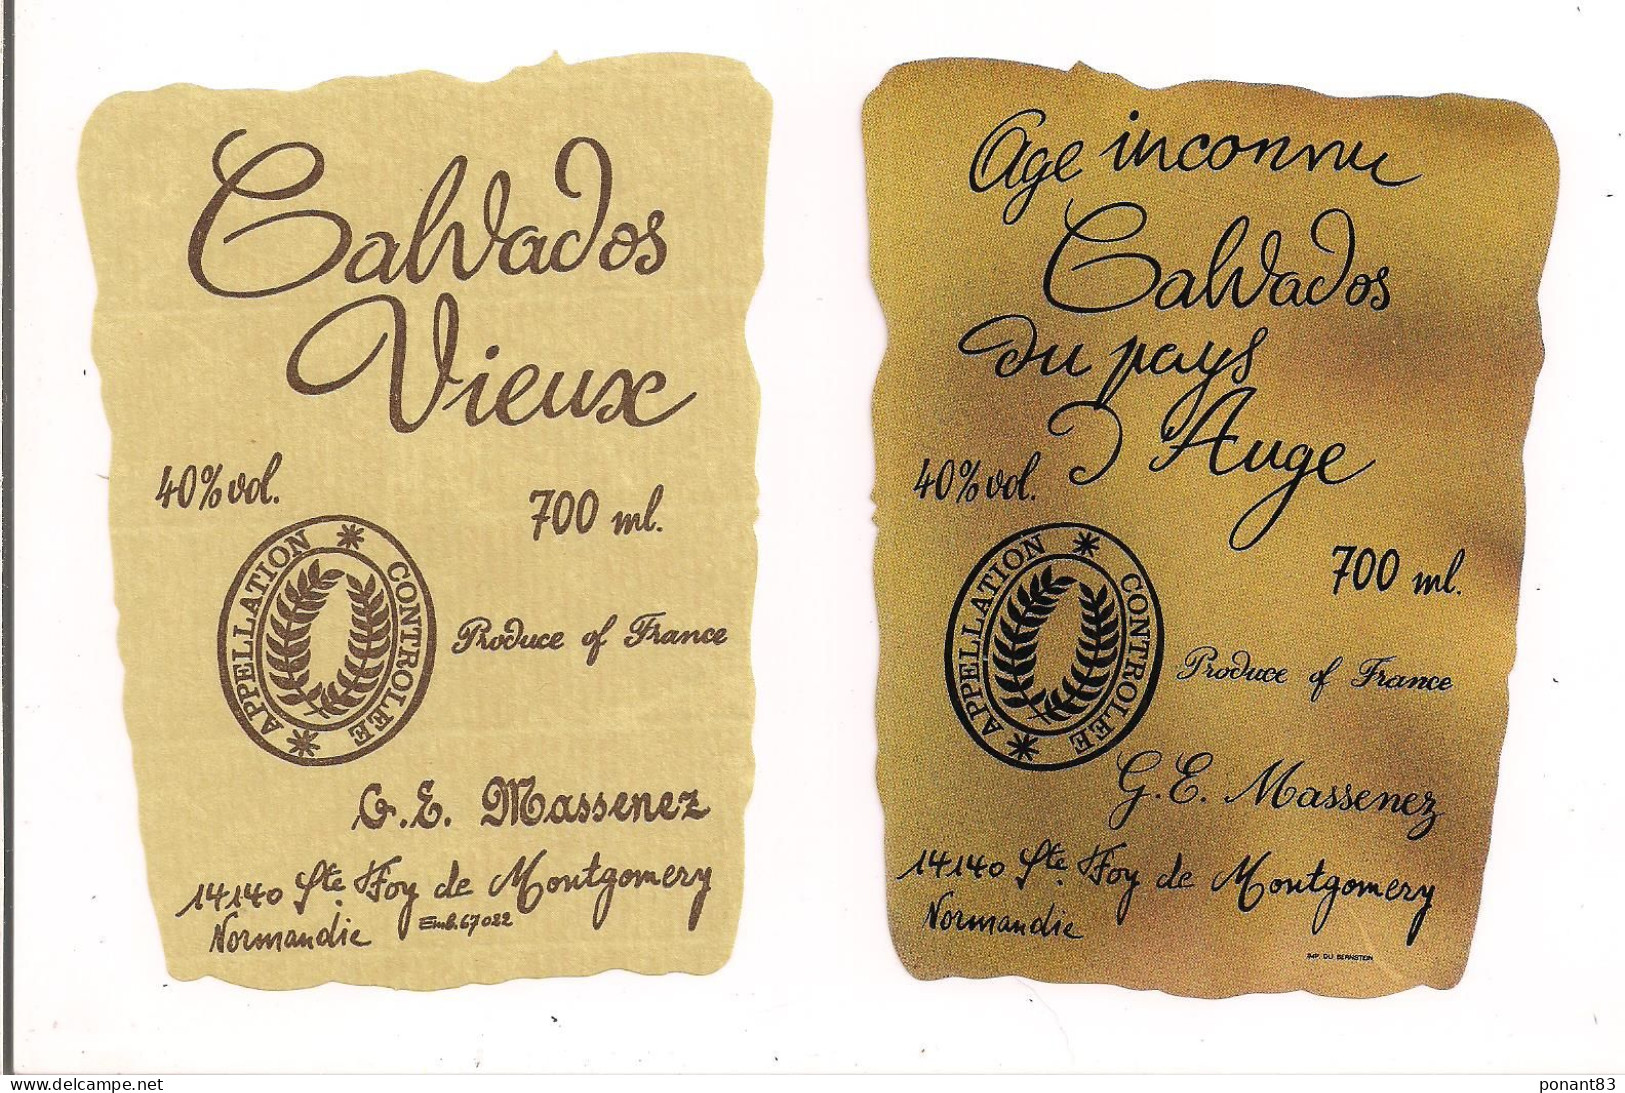 Calvados
Vieux
40% vol.
700 ml.
APPELLATION CONTROLEE
Produce of France
G.E. Massenez
14140 Ste Foy de Montgomery
Normandie
Emb. 67022
Age inconnu
Calvados
du pays
d'Auge
40% vol.
700 ml.
APPELLATION CONTROLEE
Produce of France
G.E. Massenez
14140 Ste. Foy de Montgomery
Normandie
IMP. DU BERNSTEIN
www.delcampe.net
ponant83